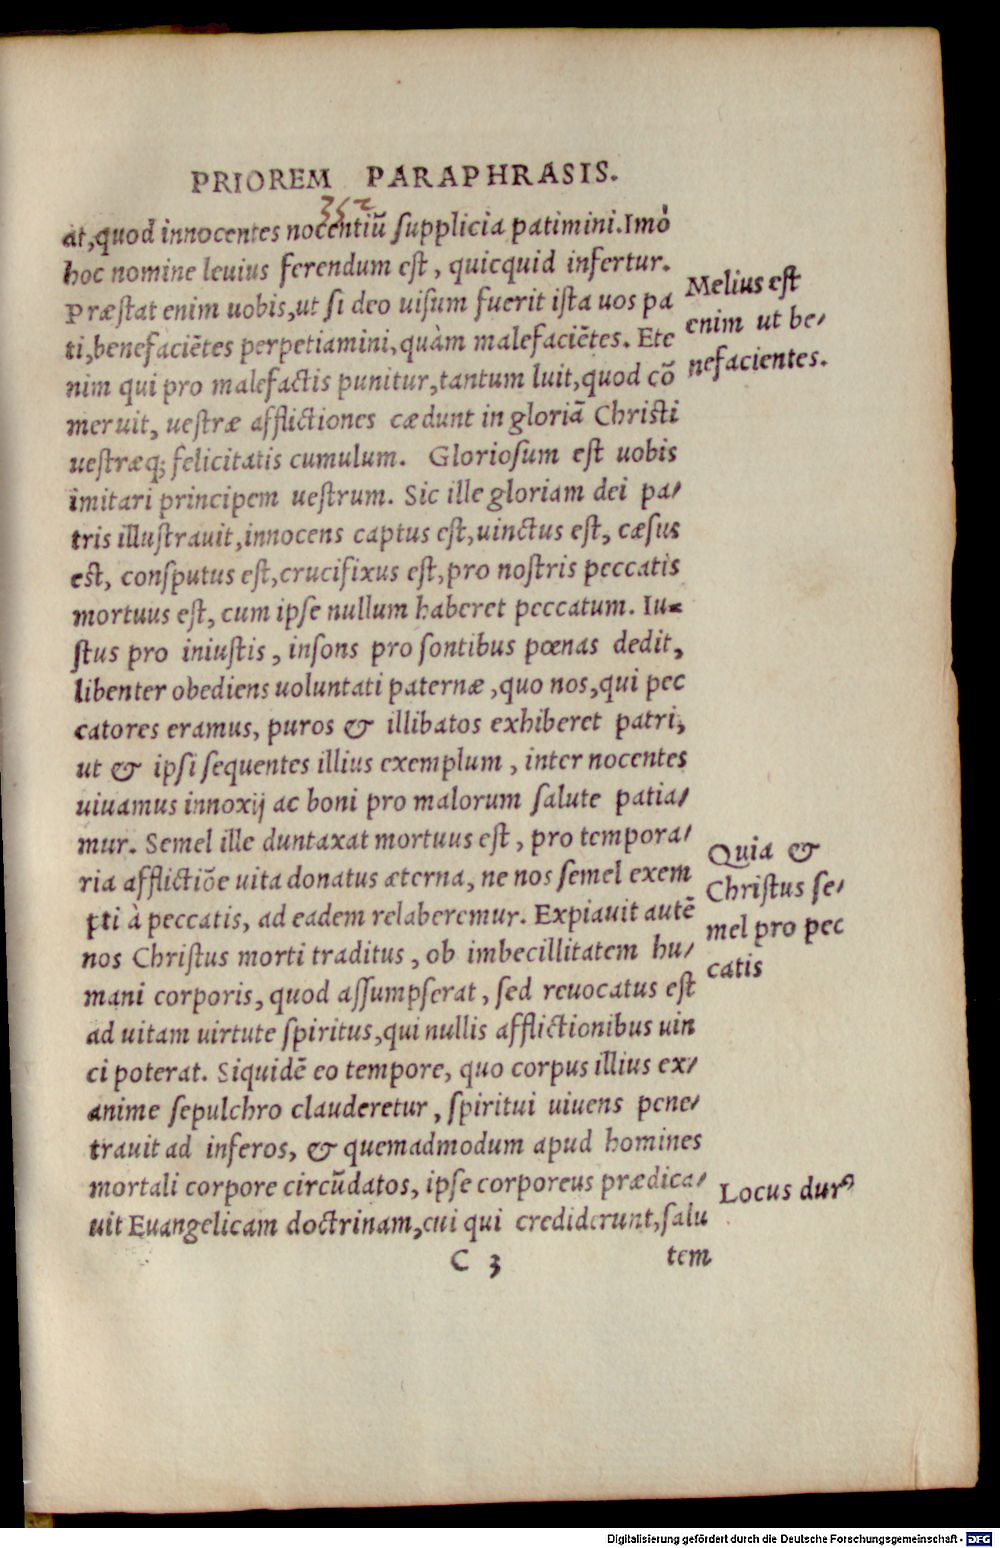 PRIOREM PARAPHRASIS.
352
at, quod innocentes nocentiũ supplicia patimini. Imò
hoc nomine leuius ferendum est, quicquid infertur.
Præstat enim uobis, ut si deo uisum fuerit ista uos pa
ti, benefaciẽtes perpetiamini, quàm malefaciẽtes. Ete
nim qui pro malefactis punitur, tantum luit, quod cõ
meruit, uestræ afflictiones cædunt in gloriã Christi
uestræq; felicitatis cumulum. Gloriosum est uobis
imitari principem uestrum. Sic ille gloriam dei pa/
tris illustrauit, innocens captus est, uinctus est, cæsus
est, consputus est, crucifixus est, pro nostris peccatis
mortuus est, cum ipse nullum haberet peccatum. Iu-
stus pro iniustis, insons pro sontibus pœnas dedit,
libenter obediens uoluntati paternæ, quo nos, qui pec
catores eramus, puros & illibatos exhiberet patri,
ut & ipsi sequentes illius exemplum, inter nocentes
uiuamus innoxij ac boni pro malorum salute patia/
mur. Semel ille duntaxat mortuus est, pro tempora/
ria afflictiõe uita donatus æterna, ne nos semel exem
pti à peccatis, ad eadem relaberemur. Expiauit autẽ
nos Christus morti traditus, ob imbecillitatem hu/
mani corporis, quod assumpserat, sed reuocatus est
ad uitam uirtute spiritus, qui nullis afflictionibus uin
ci poterat. Siquidẽ eo tempore, quo corpus illius ex/
anime sepulchro clauderetur, spiritui uiuens pene/
trauit ad inferos, & quemadmodum apud homines
mortali corpore circũdatos, ipse corporeus prædica/
uit Euangelicam doctrinam, cui qui crediderunt, salu
C 3 tem
Melius est
enim ut be/
nefacientes.
Quia &
Christus se/
mel pro pec
catis
Locus durꝰ
Digitalisierung gefördert durch die Deutsche Forschungsgemeinschaft - DFG